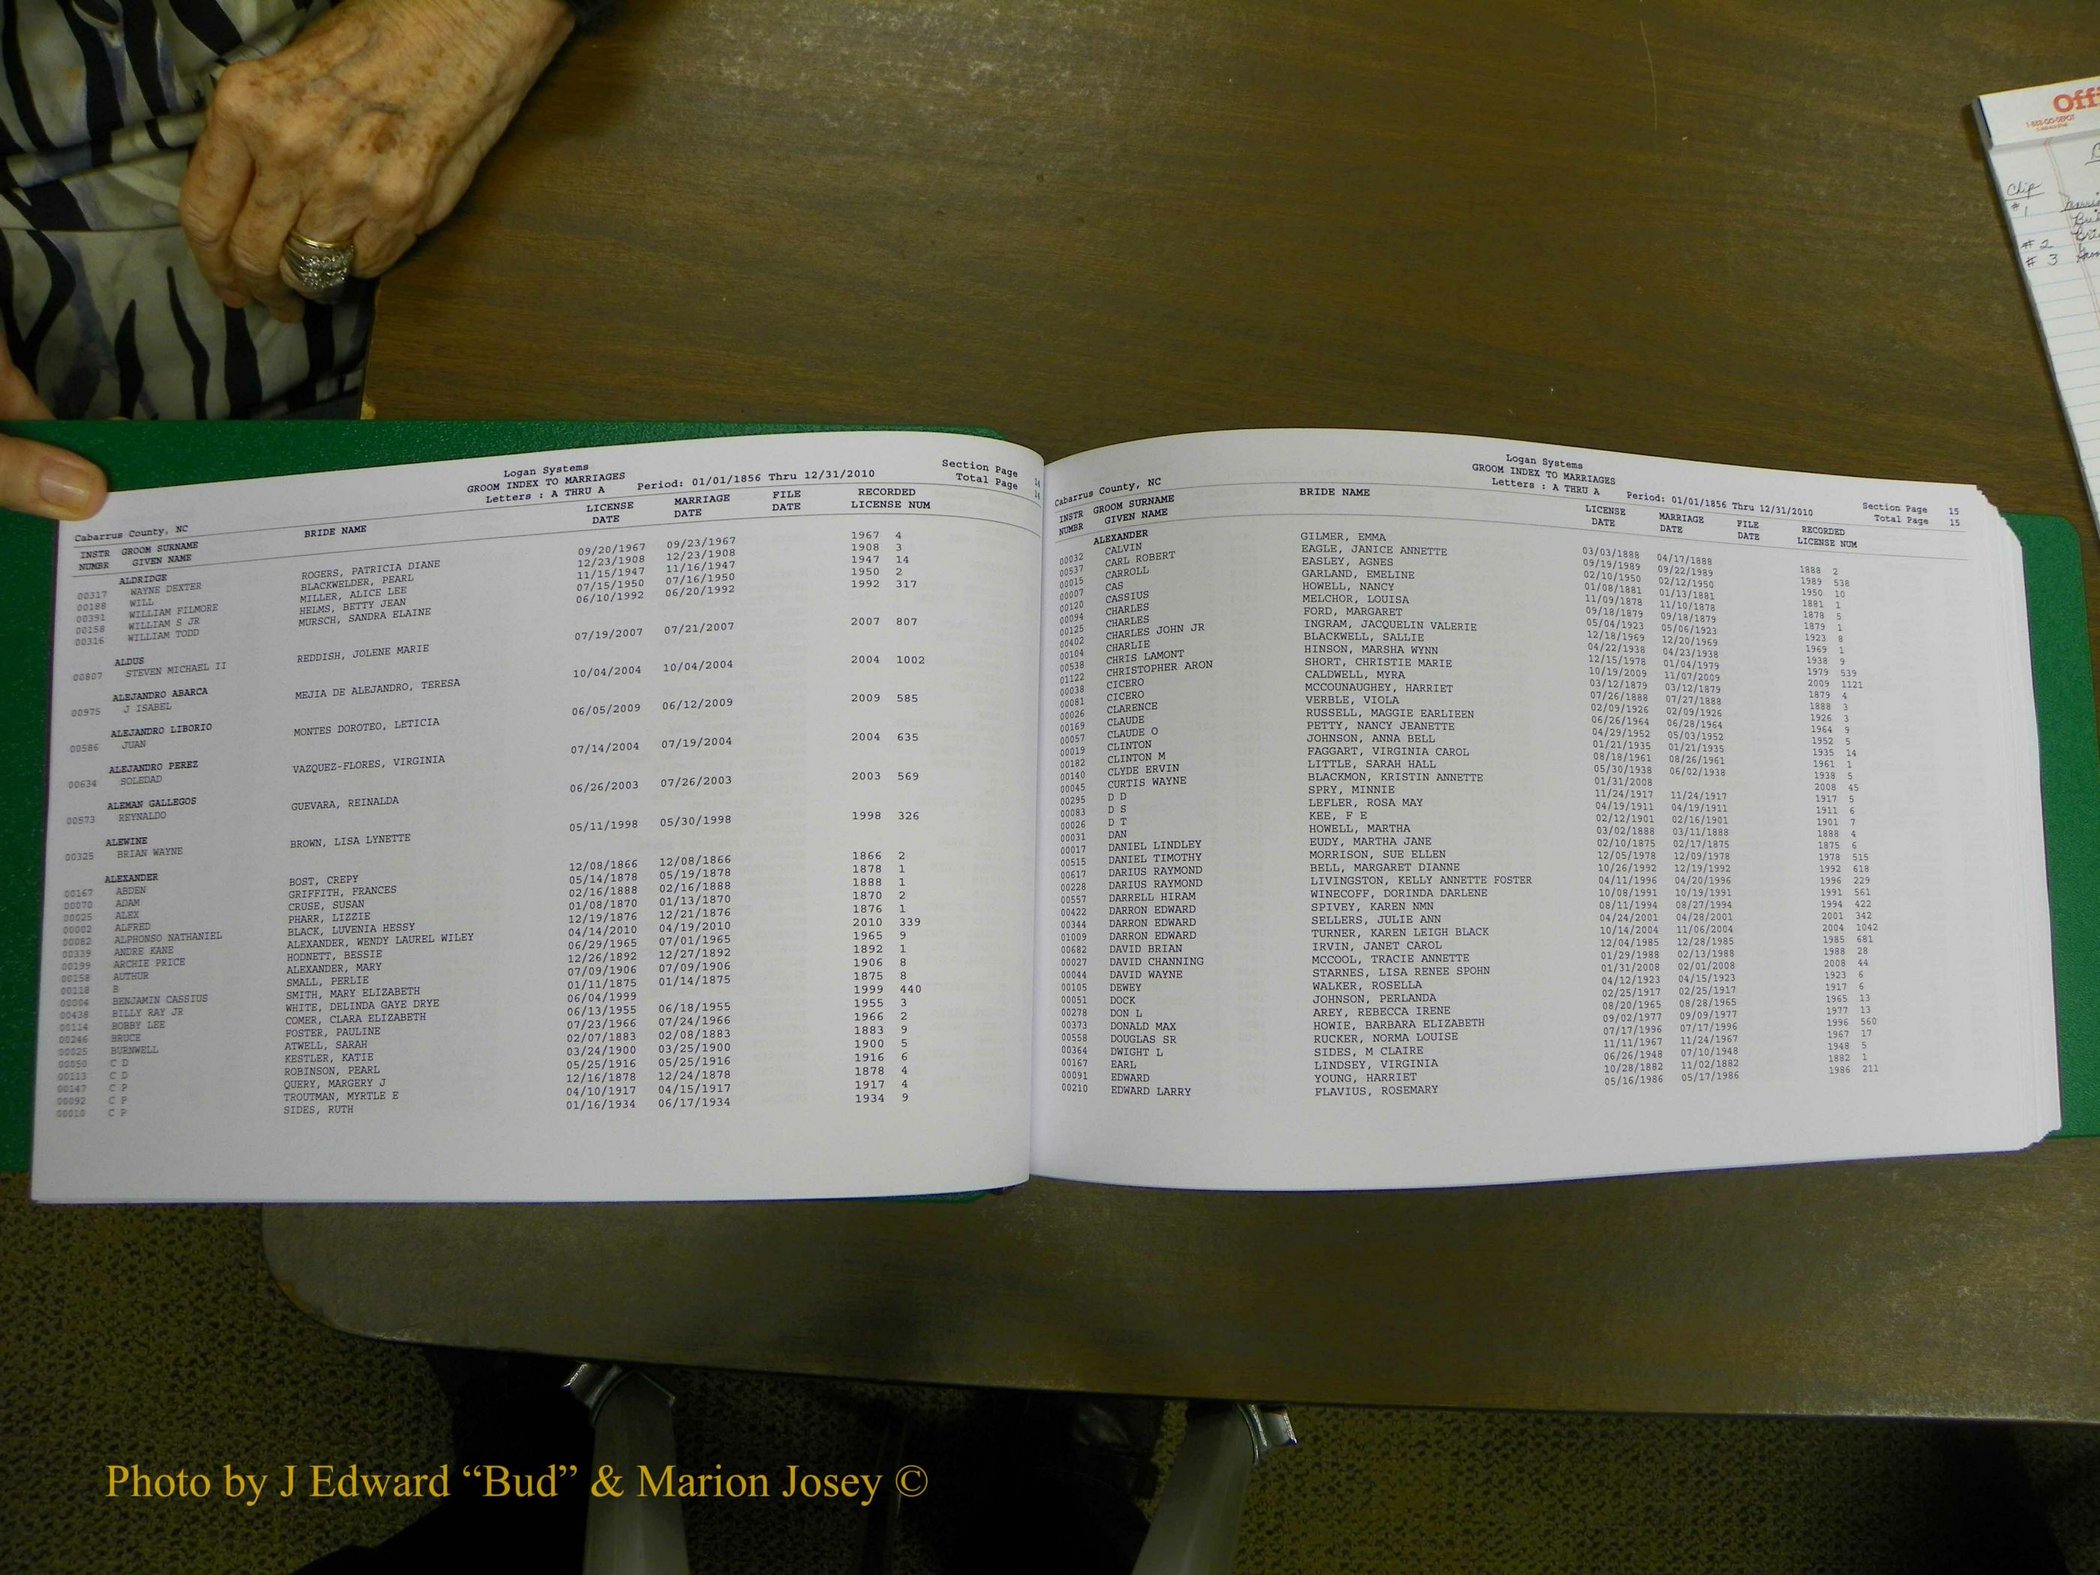 Offi
1-888-GO-DEPOT
Chip
# 1
# 2
# 3
Logan Systems
GROOM INDEX TO MARRIAGES
Letters : A THRU A Period: 01/01/1856 Thru 12/31/2010
Section Page 14
Total Page 14
Cabarrus County, NC
INSTR GROOM SURNAME BRIDE NAME LICENSE MARRIAGE FILE RECORDED
NUMBR GIVEN NAME DATE DATE DATE LICENSE NUM
ALDRIDGE
00317 WAYNE DEXTER ROGERS, PATRICIA DIANE 09/20/1967 09/23/1967 1967 4
00188 WILL BLACKWELDER, PEARL 12/23/1908 12/23/1908 1908 3
00391 WILLIAM FILMORE MILLER, ALICE LEE 11/15/1947 11/16/1947 1947 14
00158 WILLIAM S JR HELMS, BETTY JEAN 07/15/1950 07/16/1950 1950 2
00316 WILLIAM TODD MURSCH, SANDRA ELAINE 06/10/1992 06/20/1992 1992 317
ALDUS
00807 STEVEN MICHAEL II REDDISH, JOLENE MARIE 07/19/2007 07/21/2007 2007 807
ALEJANDRO ABARCA
00975 J ISABEL MEJIA DE ALEJANDRO, TERESA 10/04/2004 10/04/2004 2004 1002
ALEJANDRO LIBORIO
00586 JUAN MONTES DOROTEO, LETICIA 06/05/2009 06/12/2009 2009 585
ALEJANDRO PEREZ
00634 SOLEDAD VAZQUEZ-FLORES, VIRGINIA 07/14/2004 07/19/2004 2004 635
ALEMAN GALLEGOS
00573 REYNALDO GUEVARA, REINALDA 06/26/2003 07/26/2003 2003 569
ALEWINE
00325 BRIAN WAYNE BROWN, LISA LYNETTE 05/11/1998 05/30/1998 1998 326
ALEXANDER
00167 ABDEN BOST, CREPY 12/08/1866 12/08/1866 1866 2
00070 ADAM GRIFFITH, FRANCES 05/14/1878 05/19/1878 1878 1
00025 ALEX CRUSE, SUSAN 02/16/1888 02/16/1888 1888 1
00002 ALFRED PHARR, LIZZIE 01/08/1870 01/13/1870 1870 2
00082 ALPHONSO NATHANIEL BLACK, LUVENIA HESSY 12/19/1876 12/21/1876 1876 1
00339 ANDRE KANE ALEXANDER, WENDY LAUREL WILEY 04/14/2010 04/19/2010 2010 339
00199 ARCHIE PRICE HODNETT, BESSIE 06/29/1965 07/01/1965 1965 9
00158 AUTHUR ALEXANDER, MARY 12/26/1892 12/27/1892 1892 1
00118 B SMALL, PERLIE 07/09/1906 07/09/1906 1906 8
00004 BENJAMIN CASSIUS SMITH, MARY ELIZABETH 01/11/1875 01/14/1875 1875 8
00438 BILLY RAY JR WHITE, DELINDA GAYE DRYE 06/04/1999 1999 440
00114 BOBBY LEE COMER, CLARA ELIZABETH 06/13/1955 06/18/1955 1955 3
00246 BRUCE FOSTER, PAULINE 07/23/1966 07/24/1966 1966 2
00025 BURNWELL ATWELL, SARAH 02/07/1883 02/08/1883 1883 9
00050 C D KESTLER, KATIE 03/24/1900 03/25/1900 1900 5
00113 C D ROBINSON, PEARL 05/25/1916 05/25/1916 1916 6
00147 C P QUERY, MARGERY J 12/16/1878 12/24/1878 1878 4
00092 C P TROUTMAN, MYRTLE E 04/10/1917 04/15/1917 1917 4
00010 C P SIDES, RUTH 01/16/1934 06/17/1934 1934 9
Logan Systems
GROOM INDEX TO MARRIAGES
Letters : A THRU A Period: 01/01/1856 Thru 12/31/2010
Section Page 15
Total Page 15
Cabarrus County, NC
INSTR GROOM SURNAME BRIDE NAME LICENSE MARRIAGE FILE RECORDED
NUMBR GIVEN NAME DATE DATE DATE LICENSE NUM
ALEXANDER
00032 CALVIN GILMER, EMMA 03/03/1888 04/17/1888 1888 2
00537 CARL ROBERT EAGLE, JANICE ANNETTE 09/19/1989 09/22/1989 1989 538
00015 CARROLL EASLEY, AGNES 02/10/1950 02/12/1950 1950 10
00007 CAS GARLAND, EMELINE 01/08/1881 01/13/1881 1881 1
00120 CASSIUS HOWELL, NANCY 11/09/1878 11/10/1878 1878 5
00094 CHARLES MELCHOR, LOUISA 09/18/1879 09/18/1879 1879 1
00125 CHARLES FORD, MARGARET 05/04/1923 05/06/1923 1923 8
00402 CHARLES JOHN JR INGRAM, JACQUELIN VALERIE 12/18/1969 12/20/1969 1969 1
00104 CHARLIE BLACKWELL, SALLIE 04/22/1938 04/23/1938 1938 9
00538 CHRIS LAMONT HINSON, MARSHA WYNN 12/15/1978 01/04/1979 1979 539
01122 CHRISTOPHER ARON SHORT, CHRISTIE MARIE 10/19/2009 11/07/2009 2009 1121
00038 CICERO CALDWELL, MYRA 03/12/1879 03/12/1879 1879 4
00081 CICERO MCCOUNAUGHEY, HARRIET 07/26/1888 07/27/1888 1888 3
00026 CLARENCE VERBLE, VIOLA 02/09/1926 02/09/1926 1926 3
00169 CLAUDE RUSSELL, MAGGIE EARLIEEN 06/26/1964 06/28/1964 1964 9
00057 CLAUDE O PETTY, NANCY JEANETTE 04/29/1952 05/03/1952 1952 5
00019 CLINTON JOHNSON, ANNA BELL 01/21/1935 01/21/1935 1935 14
00182 CLINTON M FAGGART, VIRGINIA CAROL 08/18/1961 08/26/1961 1961 1
00140 CLYDE ERVIN LITTLE, SARAH HALL 05/30/1938 06/02/1938 1938 5
00045 CURTIS WAYNE BLACKMON, KRISTIN ANNETTE 01/31/2008 2008 45
00295 D D SPRY, MINNIE 11/24/1917 11/24/1917 1917 5
00083 D S LEFLER, ROSA MAY 04/19/1911 04/19/1911 1911 6
00026 D T KEE, F E 02/12/1901 02/16/1901 1901 7
00031 DAN HOWELL, MARTHA 03/02/1888 03/11/1888 1888 4
00017 DANIEL LINDLEY EUDY, MARTHA JANE 02/10/1875 02/17/1875 1875 6
00515 DANIEL TIMOTHY MORRISON, SUE ELLEN 12/05/1978 12/09/1978 1978 515
00617 DARIUS RAYMOND BELL, MARGARET DIANNE 10/26/1992 12/19/1992 1992 618
00228 DARIUS RAYMOND LIVINGSTON, KELLY ANNETTE FOSTER 04/11/1996 04/20/1996 1996 229
00557 DARRELL HIRAM WINECOFF, DORINDA DARLENE 10/08/1991 10/19/1991 1991 561
00422 DARRON EDWARD SPIVEY, KAREN NMN 08/11/1994 08/27/1994 1994 422
00344 DARRON EDWARD SELLERS, JULIE ANN 04/24/2001 04/28/2001 2001 342
01009 DARRON EDWARD TURNER, KAREN LEIGH BLACK 10/14/2004 11/06/2004 2004 1042
00682 DAVID BRIAN IRVIN, JANET CAROL 12/04/1985 12/28/1985 1985 681
00027 DAVID CHANNING MCCOOL, TRACIE ANNETTE 01/29/1988 02/13/1988 1988 28
00044 DAVID WAYNE STARNES, LISA RENEE SPOHN 01/31/2008 02/01/2008 2008 44
00105 DEWEY WALKER, ROSELLA 04/12/1923 04/15/1923 1923 6
00051 DOCK JOHNSON, PERLANDA 02/25/1917 02/25/1917 1917 6
00278 DON L AREY, REBECCA IRENE 08/20/1965 08/28/1965 1965 13
00373 DONALD MAX HOWIE, BARBARA ELIZABETH 09/02/1977 09/09/1977 1977 13
00558 DOUGLAS SR RUCKER, NORMA LOUISE 07/17/1996 07/17/1996 1996 560
00364 DWIGHT L SIDES, M CLAIRE 11/11/1967 11/24/1967 1967 17
00167 EARL LINDSEY, VIRGINIA 06/26/1948 07/10/1948 1948 5
00091 EDWARD YOUNG, HARRIET 10/28/1882 11/02/1882 1882 1
00210 EDWARD LARRY FLAVIUS, ROSEMARY 05/16/1986 05/17/1986 1986 211
Photo by J Edward “Bud” & Marion Josey ©